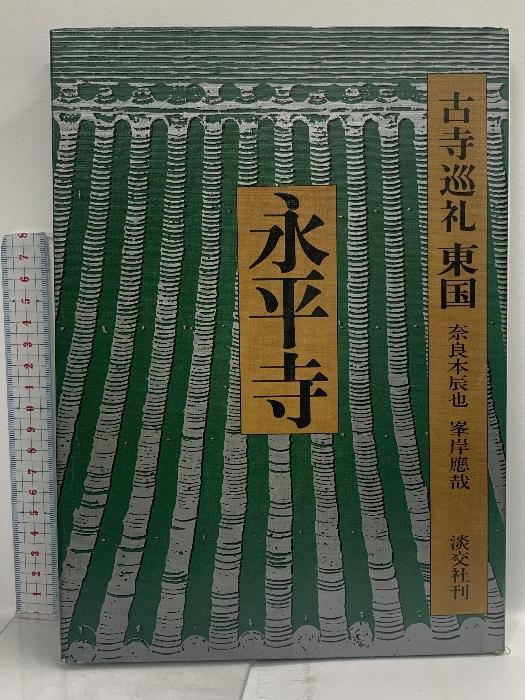 古寺巡礼 東国
奈良本辰也 峯岸應哉
淡交社刊
永平寺
1 2 3 4 5 6 7 8 9 0 1 2 3 4 5 6 7 8